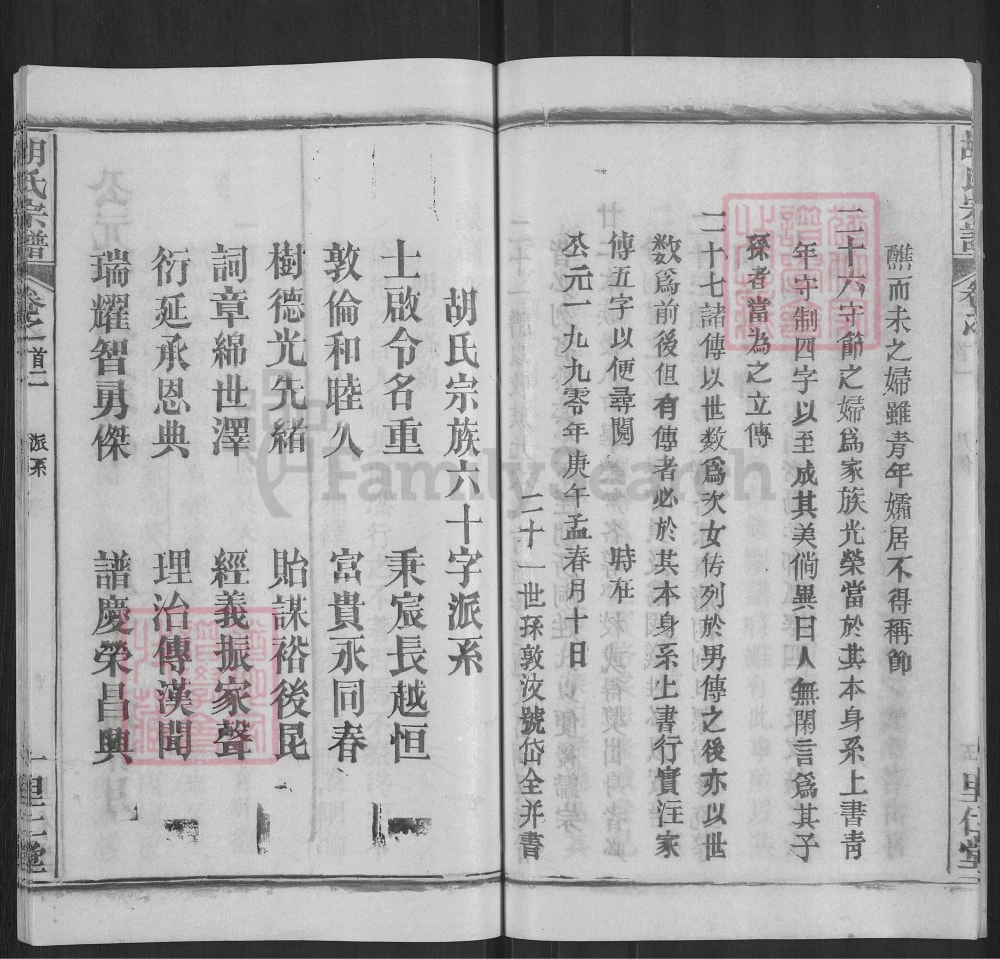 醮而未之婦雖青年孀居不得稱節
二十六守節之婦爲家族光榮當於其本身系上書青
年守制四字以至成其美倘異日人無閑言爲其子
孫者當為之立傳
二十七諸傳以世数爲次女传列於男傳之後亦以世
数爲前後但有傳者必於其本身系上書行實注家
傳五字以便尋閱 時在
公元一九九零年庚午孟春月十日
二十一世孫敦汶號岱全并書
胡氏宗族六十字派系
士啟令名重 秉宸長越恒
敦倫和睦久 富貴永同春
樹德光先緒 貽謀裕後昆
詞章綿世澤 經義振家聲
衍延承恩典 理治傳漢聞
瑞耀智勇傑 譜慶榮昌興
胡氏宗譜 卷之首二 派系 里仁堂
FamilySearch